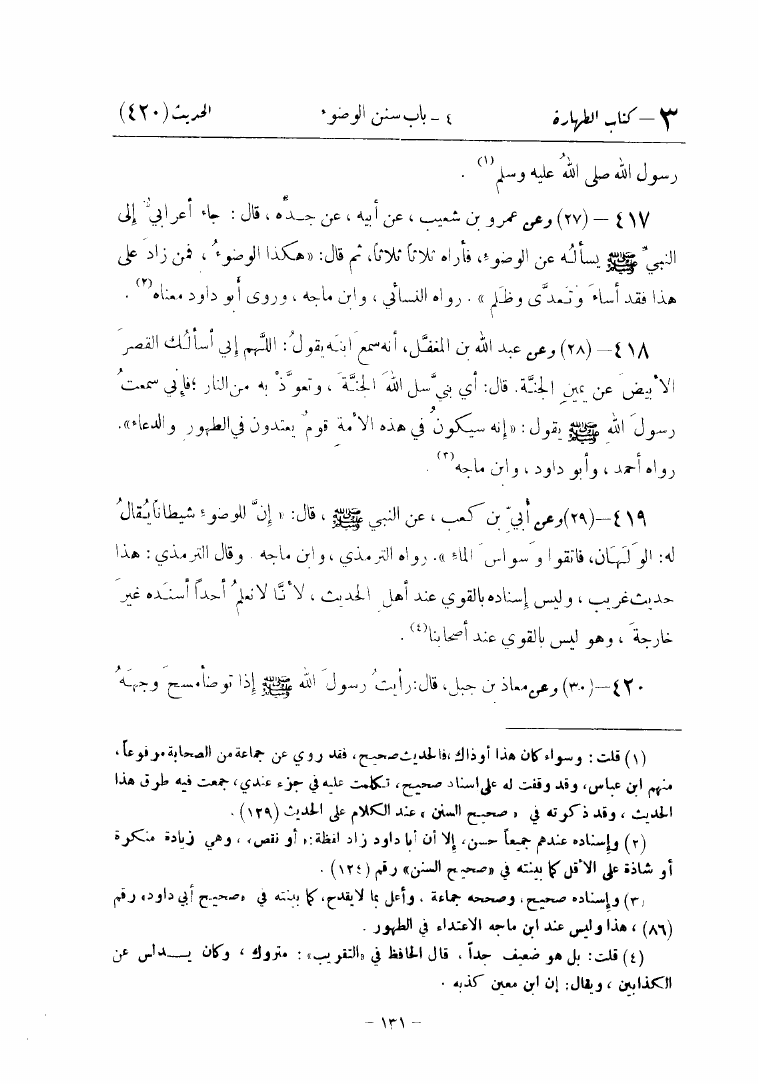 ٣ – كتاب الطهارة ٤ - باب سنن الوضوء الحديث (٤٢٠)
رسول الله صلى الله عليه وسلم (١) .
٤١٧ – (٢٧) وعن عمرو بن شعيب ، عن أبيه ، عن جدِّه ، قال : جاء أعرابيٌّ إلى
النبيِّ ﷺ يسألُه عن الوضوءِ، فأراه ثلاثاً ثلاثاً، ثم قال: «هكذا الوضوءُ ، فمن زادَ على
هذا فقد أساءَ وتعدَّى وظلم » . رواه النسائي ، وابن ماجه ، وروى أبو داود معناه (٢) .
٤١٨ – (٢٨) وعن عبد الله بن المغفَّل، أنه سمعَ ابنَه يقولُ: اللَّهم إني أسألُك القصرَ
الأبيضَ عن يمينِ الجنَّة. قال: أي بنيَّ سلِ اللهَ الجنَّةَ ، وتعوَّذْ به من النار ؛ فإني سمعتُ
رسولَ اللهِ ﷺ يقول : «إنه سيكونُ في هذه الأمةِ قومٌ يعتدون في الطهورِ والدعاءِ».
رواه أحمد ، وأبو داود ، وابن ماجه (٣) .
٤١٩ – (٢٩) وعن أُبيِّ بن كعب ، عن النبي ﷺ ، قال: « إنَّ للوضوءِ شيطاناً يُقالُ
له: الوَلَهَان، فاتقوا وَسواسَ الماءِ ». رواه الترمذي ، وابن ماجه . وقال الترمذي : هذا
حديث غريب ، وليس إسناده بالقوي عند أهلِ الحديث ، لأنَّا لا نعلمُ أحداً أسنَده غيرَ
خارجةَ ، وهو ليس بالقوي عند أصحابنا (٤) .
٤٢٠ – (٣٠) وعن معاذ بن جبل، قال: رأيتُ رسولَ الله ﷺ إذا توضأ مسحَ وجهَهُ
(١) قلت : وسواء كان هذا أو ذاك، فالحديث صحيح، فقد روي عن جماعة من الصحابة مرفوعاً،
منهم ابن عباس، وقد وقفت له على اسناد صحيح، تكلمت عليه في جزء عندي، جمعت فيه طرق هذا
الحديث ، وقد ذكرته في « صحيح السنن » عند الكلام على الحديث (١٢٩) .
(٢) وإسناده عندهم جميعاً حسن، إلا أن أبا داود زاد لفظة: « أو نقص » ، وهي زيادة منكرة
أو شاذة على الأقل كما بينته في «صحيح السنن» رقم (١٢٤) .
(٣) وإسناده صحيح، وصححه جماعة ، وأعل بما لا يقدح، كما بينته في «صحيح أبي داود» رقم
(٨٦) ، هذا وليس عند ابن ماجه الاعتداء في الطهور .
(٤) قلت : بل هو ضعيف جداً ، قال الحافظ في «التقريب» : متروك ، وكان يدلس عن
الكذابين ، ويقال: إن ابن معين كذبه .
– ١٣١ –